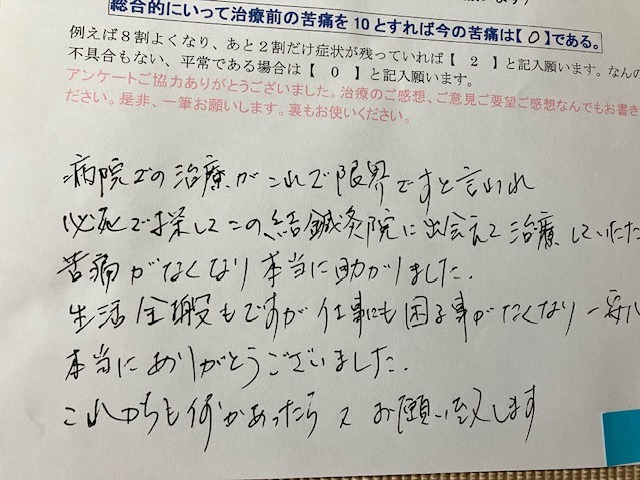 総合的にいって治療前の苦痛を10とすれば今の苦痛は【 0 】である。
例えば8割よくなり、あと2割だけ症状が残っていれば【 2 】と記入願います。なんの
不具合もない、平常である場合は【 0 】と記入願います。
アンケートご協力ありがとうございました。治療のご感想、ご意見ご要望ご感想なんでもお書き
ださい。是非、一筆お願いします。裏もお使いください。
病院での治療がこれで限界ですと言われ
必死で探してこの結鍼灸院に出会えて治療していただ
苦痛がなくなり本当に助かりました.
生活全般もですが仕事にも困る事がなくなり一安心
本当にありがとうございました.
これからも何かあったら又お願い致します